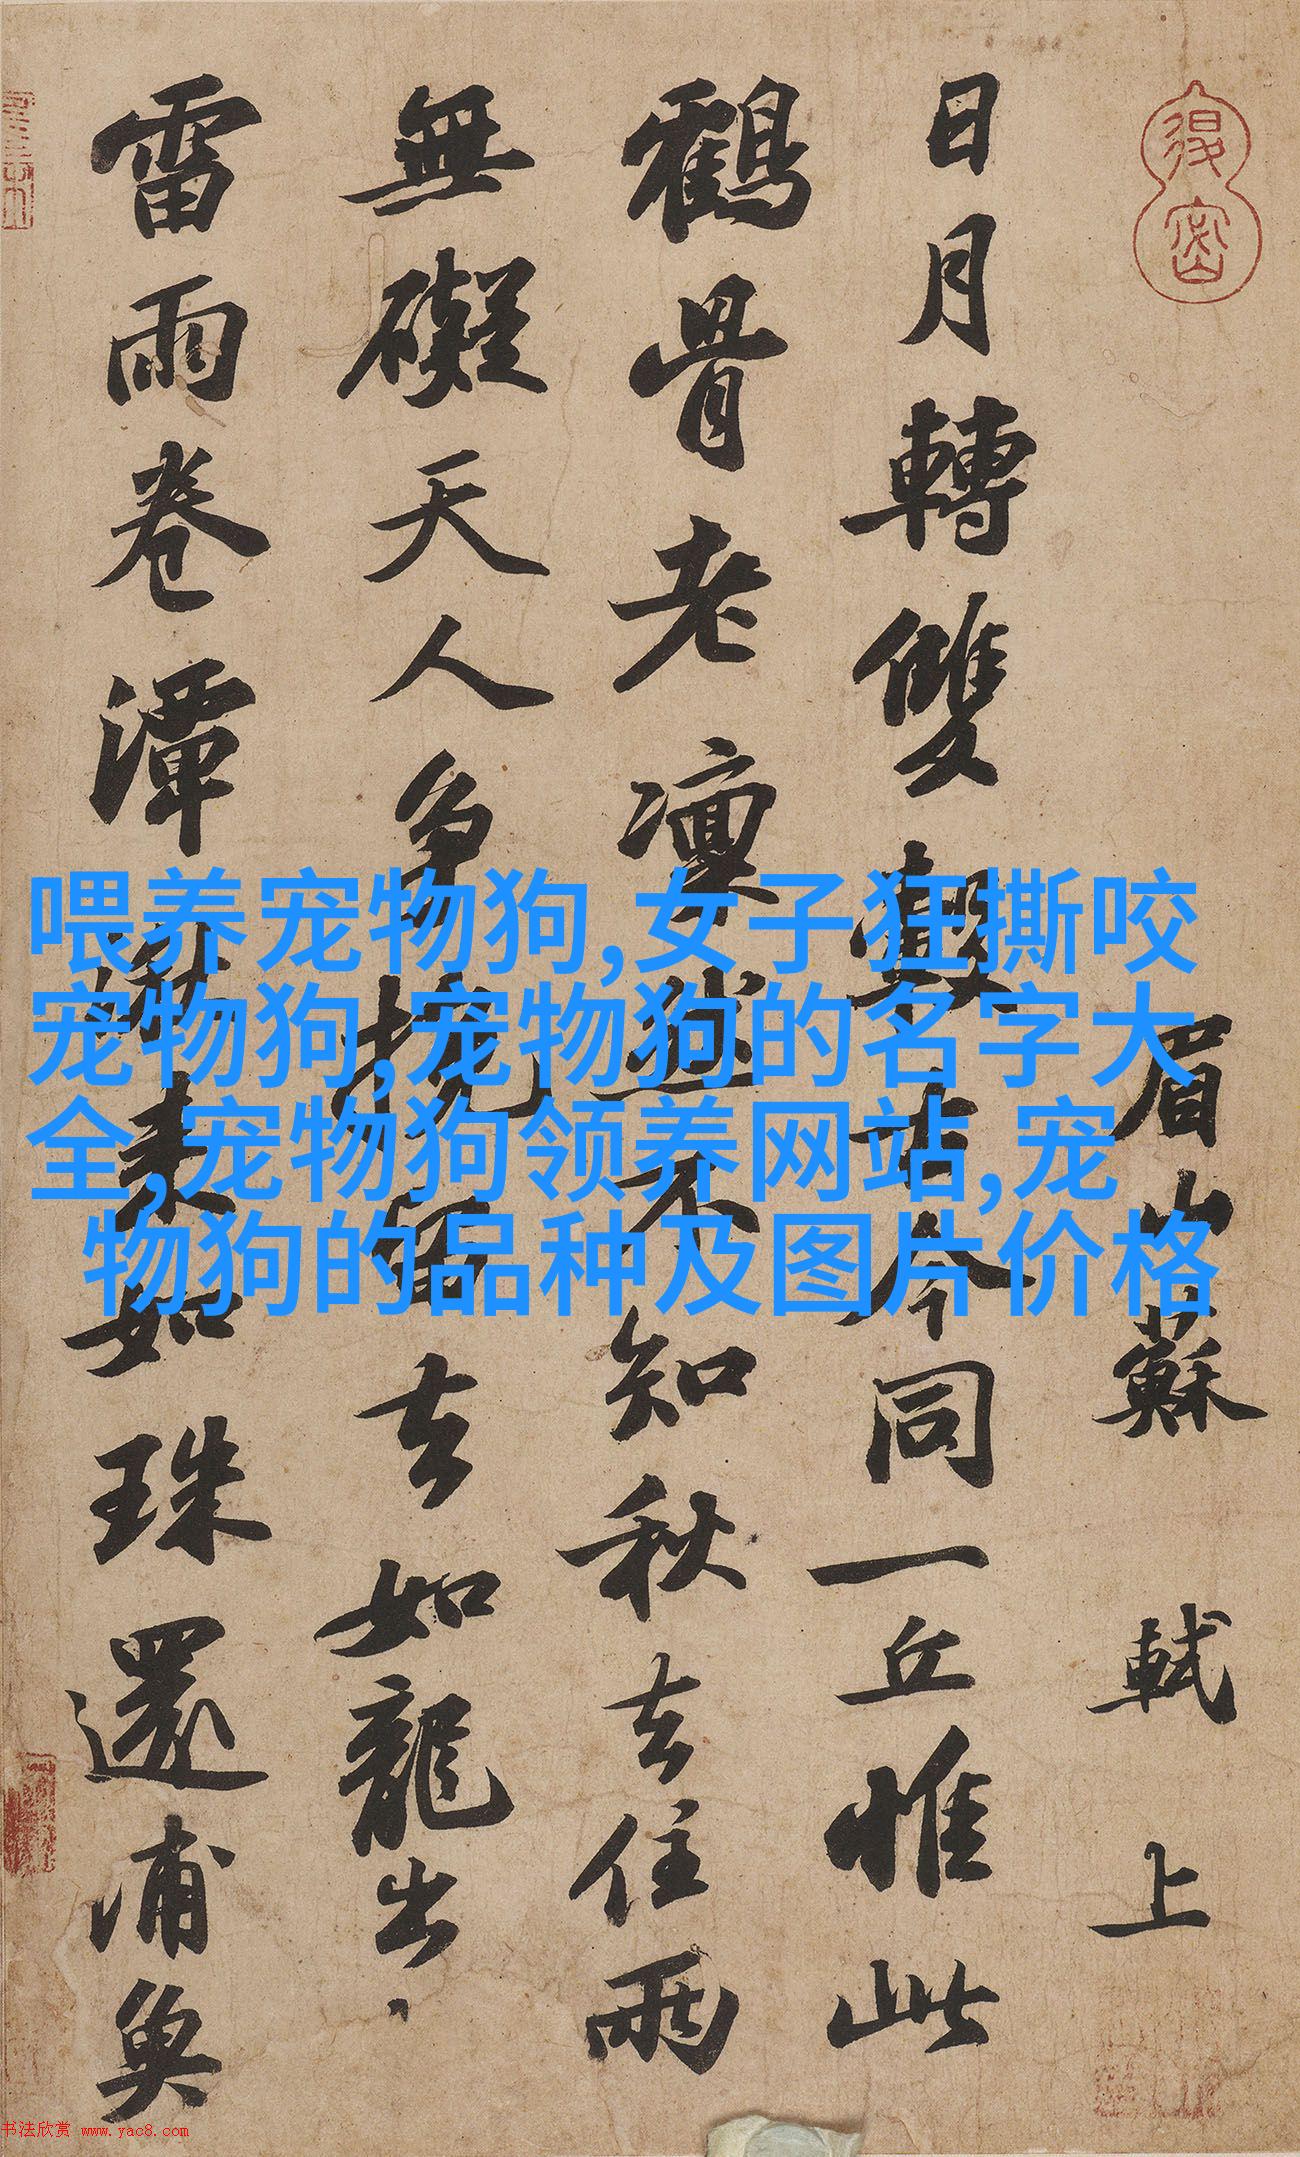 眉山蘇軾上
日月轉雙轂古今同一丘惟此
鶴骨老凜然不知秋去住兩
無礙天人争挽留去如龍出
雷雨卷潭湫來如珠還浦魚
喂养宠物狗,女子狂撕咬
宠物狗,宠物狗的名字大
全,宠物狗领养网站,宠
物狗的品种及图片价格
书法欣赏 www.yac8.com